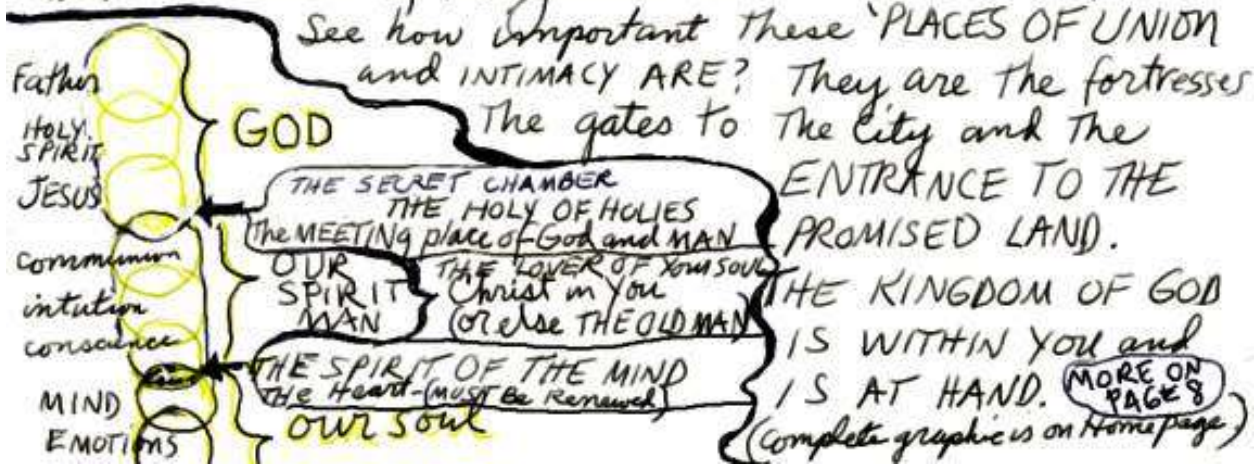 See how important these 'PLACES OF UNION
and INTIMACY ARE? They are the fortresses
The gates to The City and The
ENTRANCE TO THE
PROMISED LAND.
THE KINGDOM OF GOD
IS WITHIN YOU and
IS AT HAND.
MORE ON
PAGE 8
(complete graphic is on Home page)
Father
HOLY.
SPIRIT
JESUS
GOD
THE SECRET CHAMBER
THE HOLY OF HOLIES
The MEETING place of God and MAN
communion
intuition
conscience
OUR
SPIRIT
MAN
THE LOVER OF YOUR SOUL
Christ in You
(or else THE OLD MAN)
THE SPIRIT OF THE MIND
THE Heart-(MUST Be Renewed)
MIND
EMOTIONS
our soul